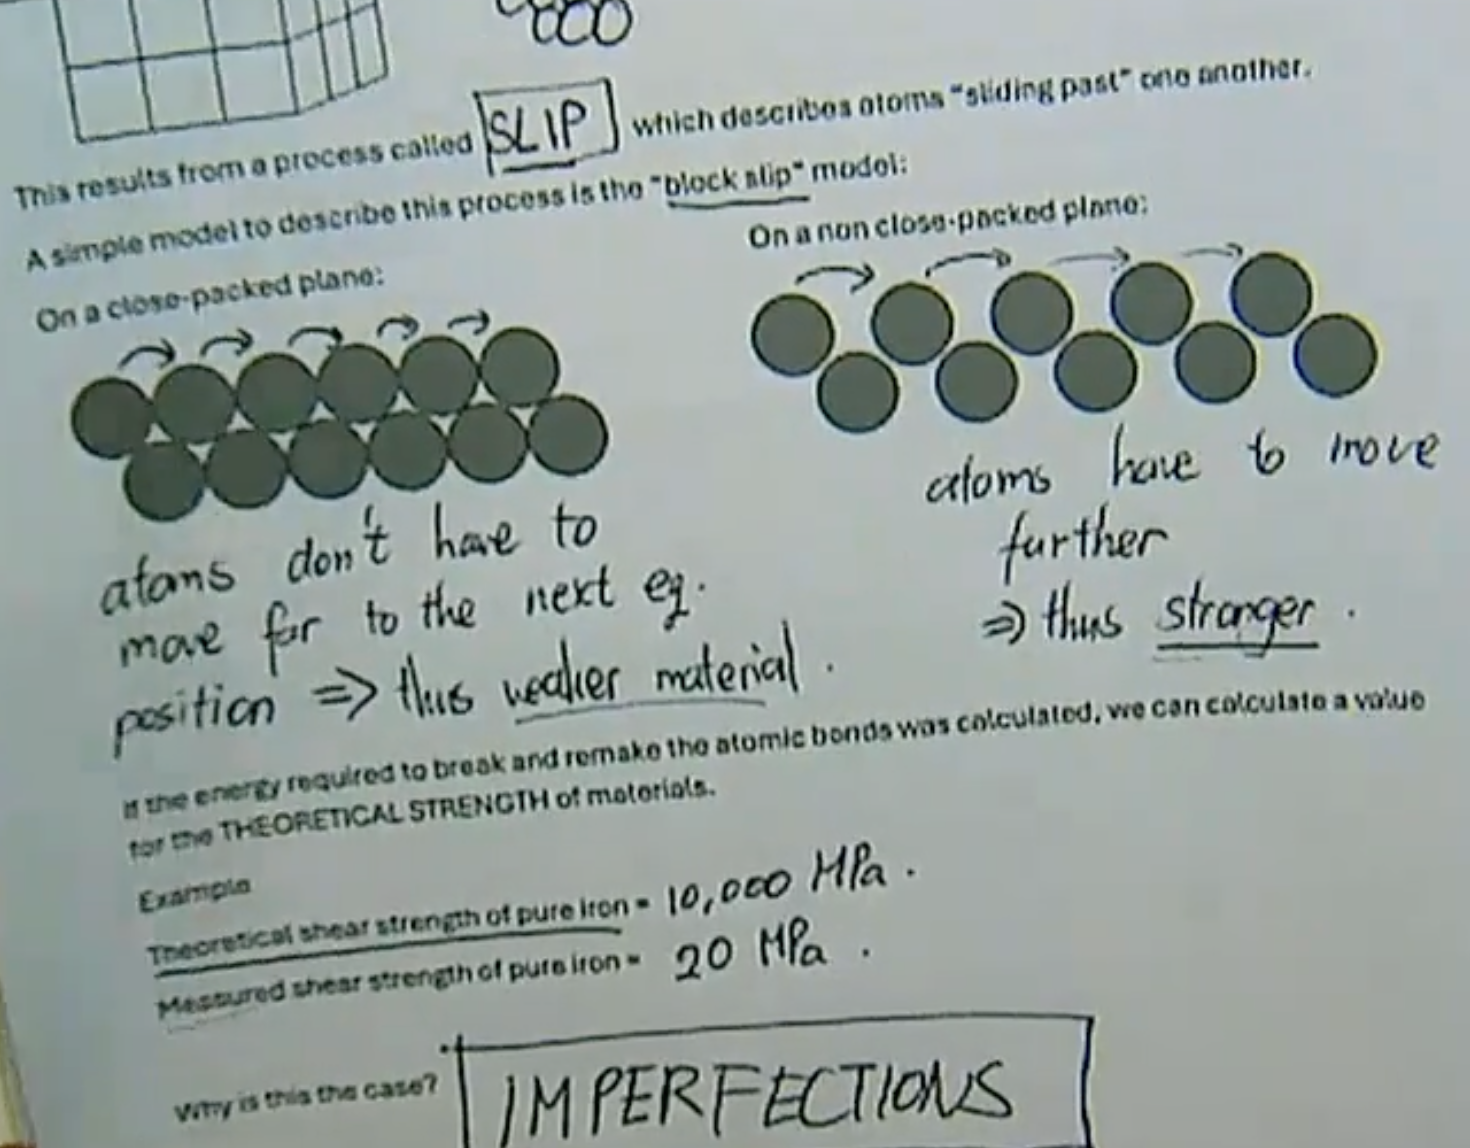 This results from a process called SLIP which describes atoms "sliding past" one another.
A simple model to describe this process is the "block slip" model:
On a close-packed plane:
On a non close-packed plane:
atoms don't have to
move far to the next eq.
position ⇒ thus weaker material.
atoms have to move
further
⇒ thus stronger.
If the energy required to break and remake the atomic bonds was calculated, we can calculate a value
for the THEORETICAL STRENGTH of materials.
Example
Theoretical shear strength of pure iron = 10,000 MPa.
Measured shear strength of pure iron = 20 MPa.
Why is this the case? IMPERFECTIONS